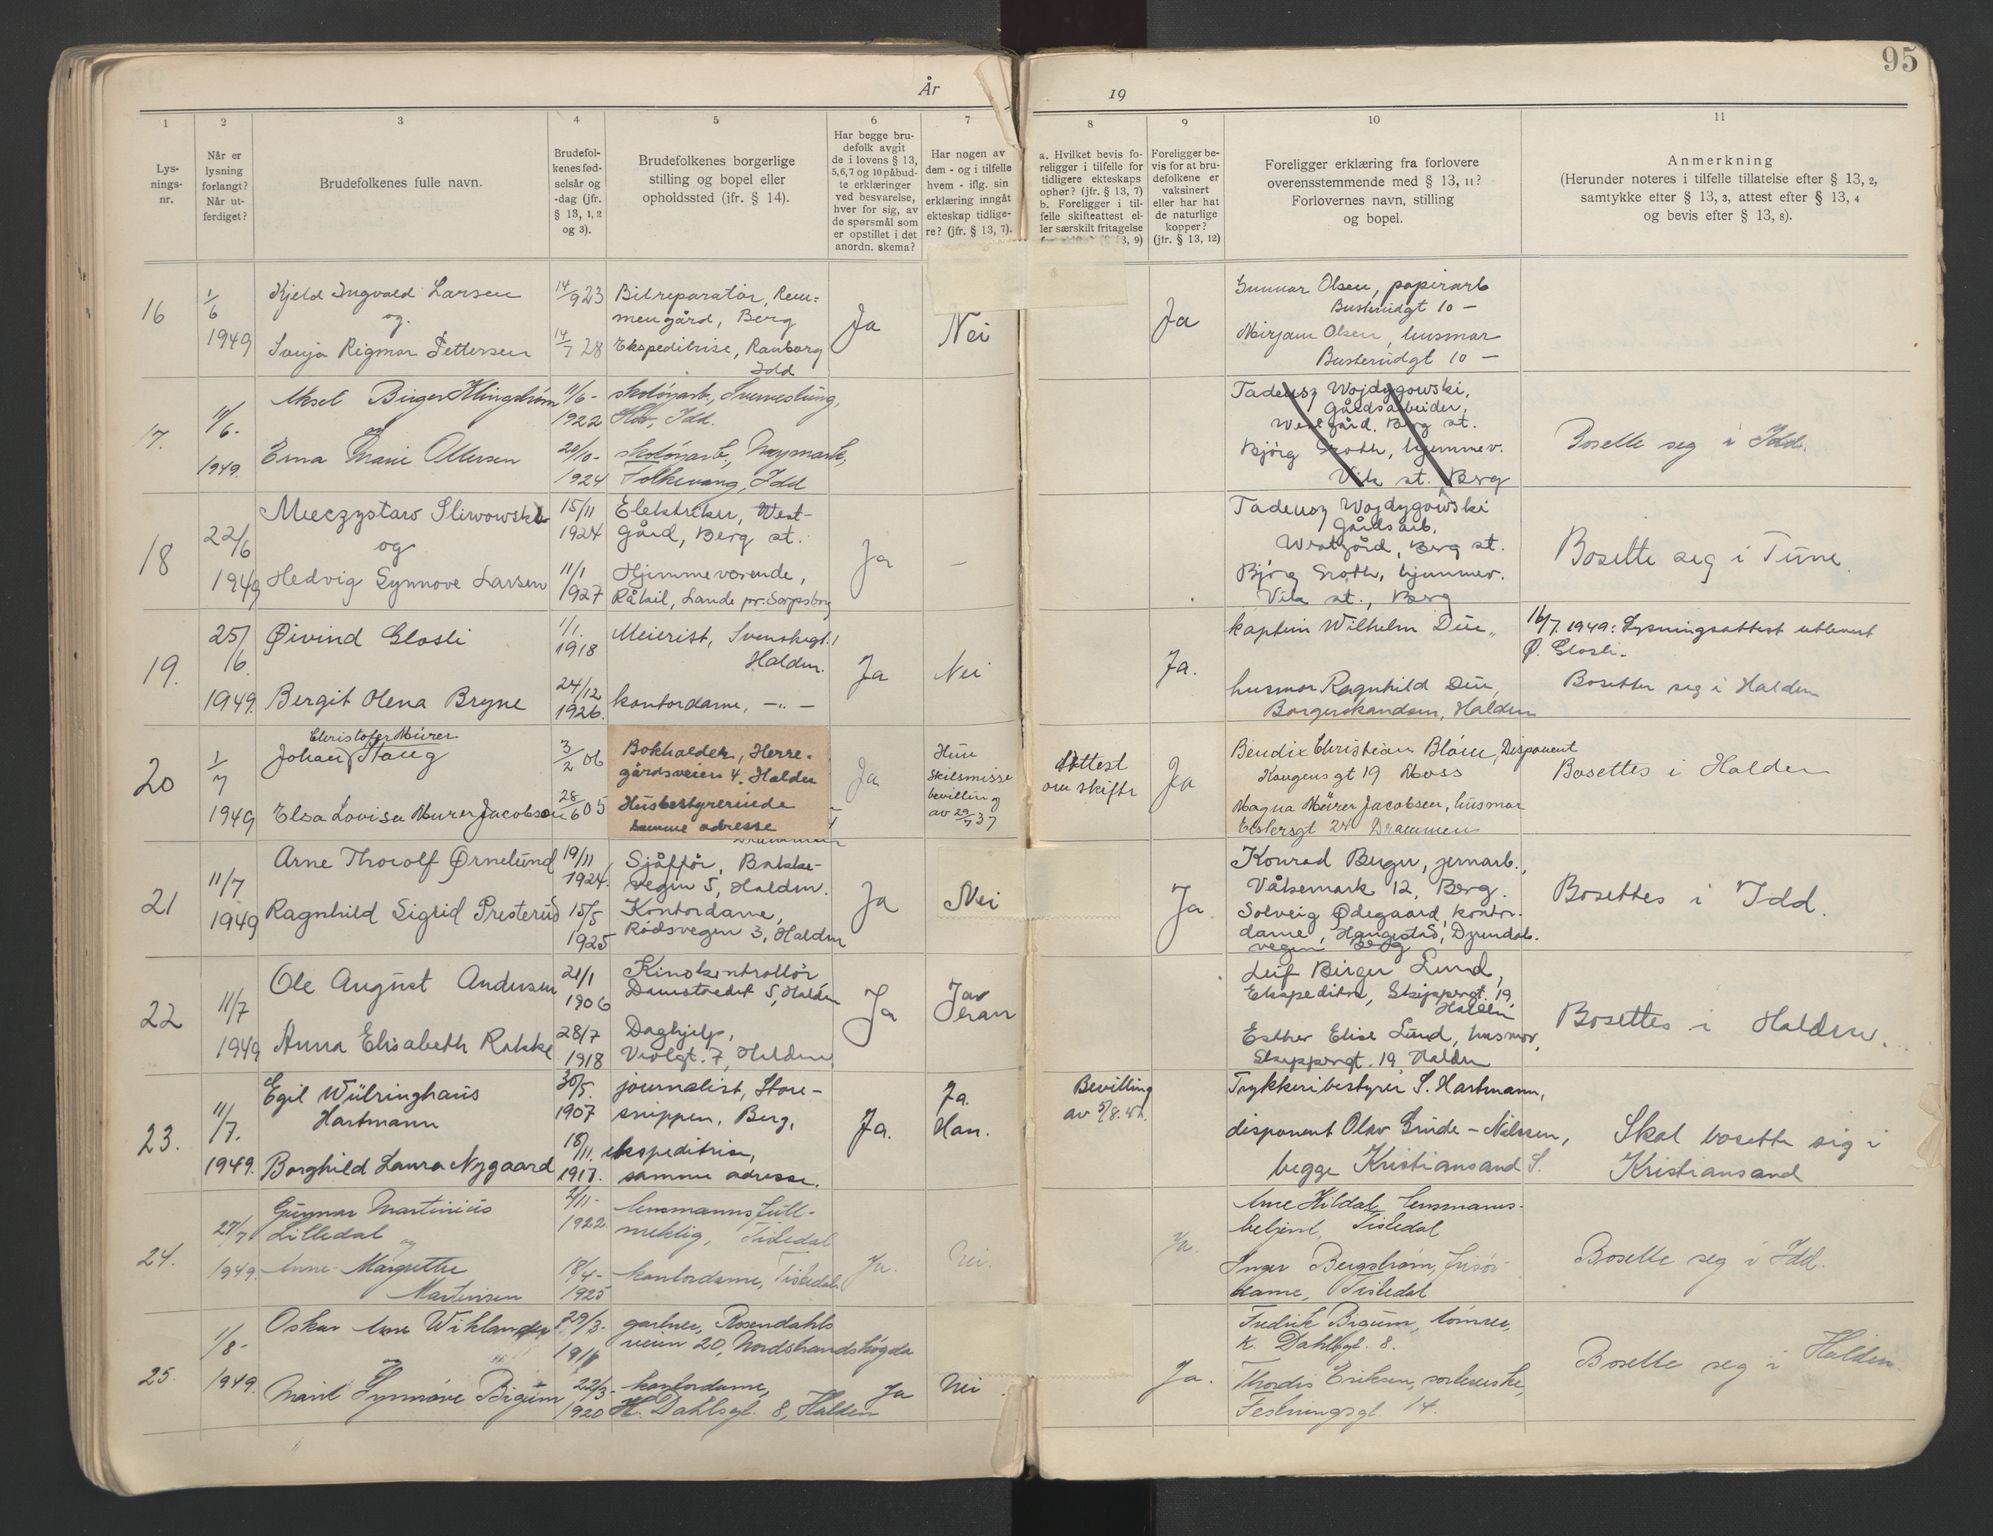 95
År
19
1
2
3
4
5
6
7
8
9
10
11
Lys-
nings-
nr.
Når er
lysning
forlangt?
Når ut-
ferdiget?
Brudefolkenes fulle navn.
Brudefol-
kenes fød-
selsår og
-dag (jfr.
§ 13, 1, 2
og 3).
Brudefolkenes borgerlige
stilling og bopel eller
opholdssted (jfr. § 14).
Har begge bru-
defolk avgit
de i lovens § 13,
5,6,7 og 10 påbud-
te erklæringer
ved besvarelse,
hver for sig, av
de spørsmål som
er opstillet i det
anordn. skema?
Har nogen av
dem - og i tilfelle
hvem - iflg. sin
erklæring inngåt
ekteskap tidlige-
re? (jfr. § 13, 7).
a. Hvilket bevis fo-
religger i tilfelle for
tidligere ekteskaps
ophør? (jfr. § 13, 7)
b. Foreligger i til-
felle skifteattest el-
ler særskilt fritagelse
3, 9)
Foreligger be-
vis for at bru-
defolkene er
vaksinert
eller har hat
de naturlige
kopper?
(jfr. § 13, 12)
Foreligger erklæring fra forlovere
overensstemmende med § 13, 11?
Forlovernes navn, stilling
og bopel.
Anmerkning
(Herunder noteres i tilfelle tillatelse efter § 13, 2,
samtykke efter § 13, 3, attest efter § 13, 4
og bevis efter § 13, 8).
16
1/6
1949
Kjeld Ingvald Larsen
og
Sonja Rigmor Pettersen
14/9 23
14/7 28
Bilreparatør, Rem-
mengård, Berg
Ekspeditrise, Ranborg
Idd
Ja
Nei
Ja
Gunnar Olsen, papirarb
Busterudgt 10 –
Mirjam Olsen, husmor
Busterudgt 10 –
17.
11/6-
1949.
Aksel Birger Klingstrøm
og
Erna Marie Ottersen
11/6-
1922
20/10-
1924
skotøiarb., Svenestung,
Hov, Idd.
skotøiarb.,
Folkevang, Idd
Tadeusz Wojdygowski,
Gårdsarbeider,
Westgård, Berg st.
Bjørg Groth, hjemmev.
Vik st. Berg
Bosette seg i Idd.
18
22/6
1949
Mieczystaw Sliwowski
og
Hedvig Synnøve Larsen
15/11
1924
11/1
1927
Elektriker, West-
gård, Berg st.
Hjemmeværende,
Råkil, Lande pr. Sarpsborg
Ja
–
Tadeusz Wojdygowski
Gårdsarb.
Westgård, Berg st.
Bjørg Groth, hjemmev.
Vik st., Berg
Bosette seg i Tune.
19.
25/6.
1949.
Øivind Glosli
Bergit Olena Bryne
1/1.
1918
24/12
1926.
Meierist, Svenskegt.
Halden.
kontordame, –"–
Ja
Nei
Ja.
kaptein Wilhelm Due,
husmor Ragnhild Due,
Borgerskansen, Halden
16/7. 1949: Lysningsattest utlevert
Ø. Glosli.
Bosetter seg i Halden
20
1/7
1949
Christofer Mürer
Johan Haug
Elsa Lovisa Murer Jacobsen
3/2 06
28/6 05
Bokholder, Herre-
gårdsveien 4. Halden
Husbestyrerinde
samme adresse
Drammen
Ja
Hun
skilsmisse
bevilling
av 29/7 37
Attest
om skifte
Ja
Bendix Christian Blom, Disponent
Kongensgt 19 Moss
Magna Mürer Jacobsen, husmor
Eistersgt 24 Drammen
Bosettes i Halden
21
11/7
1949
Arne Thorolf Ørnelund
Ragnhild Sigrid Presterud
19/11
1924.
15/5
1925
Sjåffør, Bakke-
vegen 5, Halden.
Kontordame,
Rødsvegen 3, Halden
Ja
Nei
Ja
Konrad Berger, jernarb.,
Våkemark 12, Berg.
Solveig Ødegaard, kontor-
dame, Haugestad, Djundal-
vegen Berg
Bosettes i Idd.
22
11/7
1949
Ole August Andersen
Anna Elisabeth Rakke
21/1
1906
28/7
1918
Kinokontrollør
Damstredet 5, Halden
Daghjelp,
Violgt. 7, Halden
Ja
Jav
Iran
Leif Birger Lund,
Ekspeditør, Skippergt. 19,
Halden
Esther Elise Lund, husmor,
Skippergt. 19, Halden
Bosettes i Halden.
23.
11/7.
1949.
Egil Wülringhaus
Hartmann
Borghild Laura Nygaard
30/5.
1907
18/11.
1917.
journalist, Store-
snippen, Berg,
ekspeditrise,
samme adresse.
Ja.
Ja.
Han.
Bevilling
av 5/8. 42.
Trykkeribestyrer S. Hartmann,
disponent Olav Grude-Nilssen,
begge Kristiansand S.
Skal bosette sig i
Kristiansand
24.
27/7
1949.
Gunnar Martinius
Lilledal
og
Anne-Margrethe
Martinsen
2/11-
1922.
18/4-
1925
lensmannsfull-
mektig, Tistedal
kontordame, Tistedal.
Ja.
Nei.
Ja.
Arne Hildal, lensmanns-
betjent, Tistedal
Inger Bergstrøm, frisør-
dame, Tistedal
Bosette seg i Idd.
25.
1/8-
1949.
Oskar Arne Wiklander
og
Marit Synnøve Bigum
29/3-
1918
22/3-
1920
gartner, Rosendahls
veien 20, Nordstrandshøgda
kontordame,
K. Dahlsgt. 8, Halden
Ja
Nei
Ja.
Fredrik Bigum, tømrer,
K. Dahlsgt. 8.
Thordis Eriksen,
Festningsgt. 14.
Bosette seg i Halden.